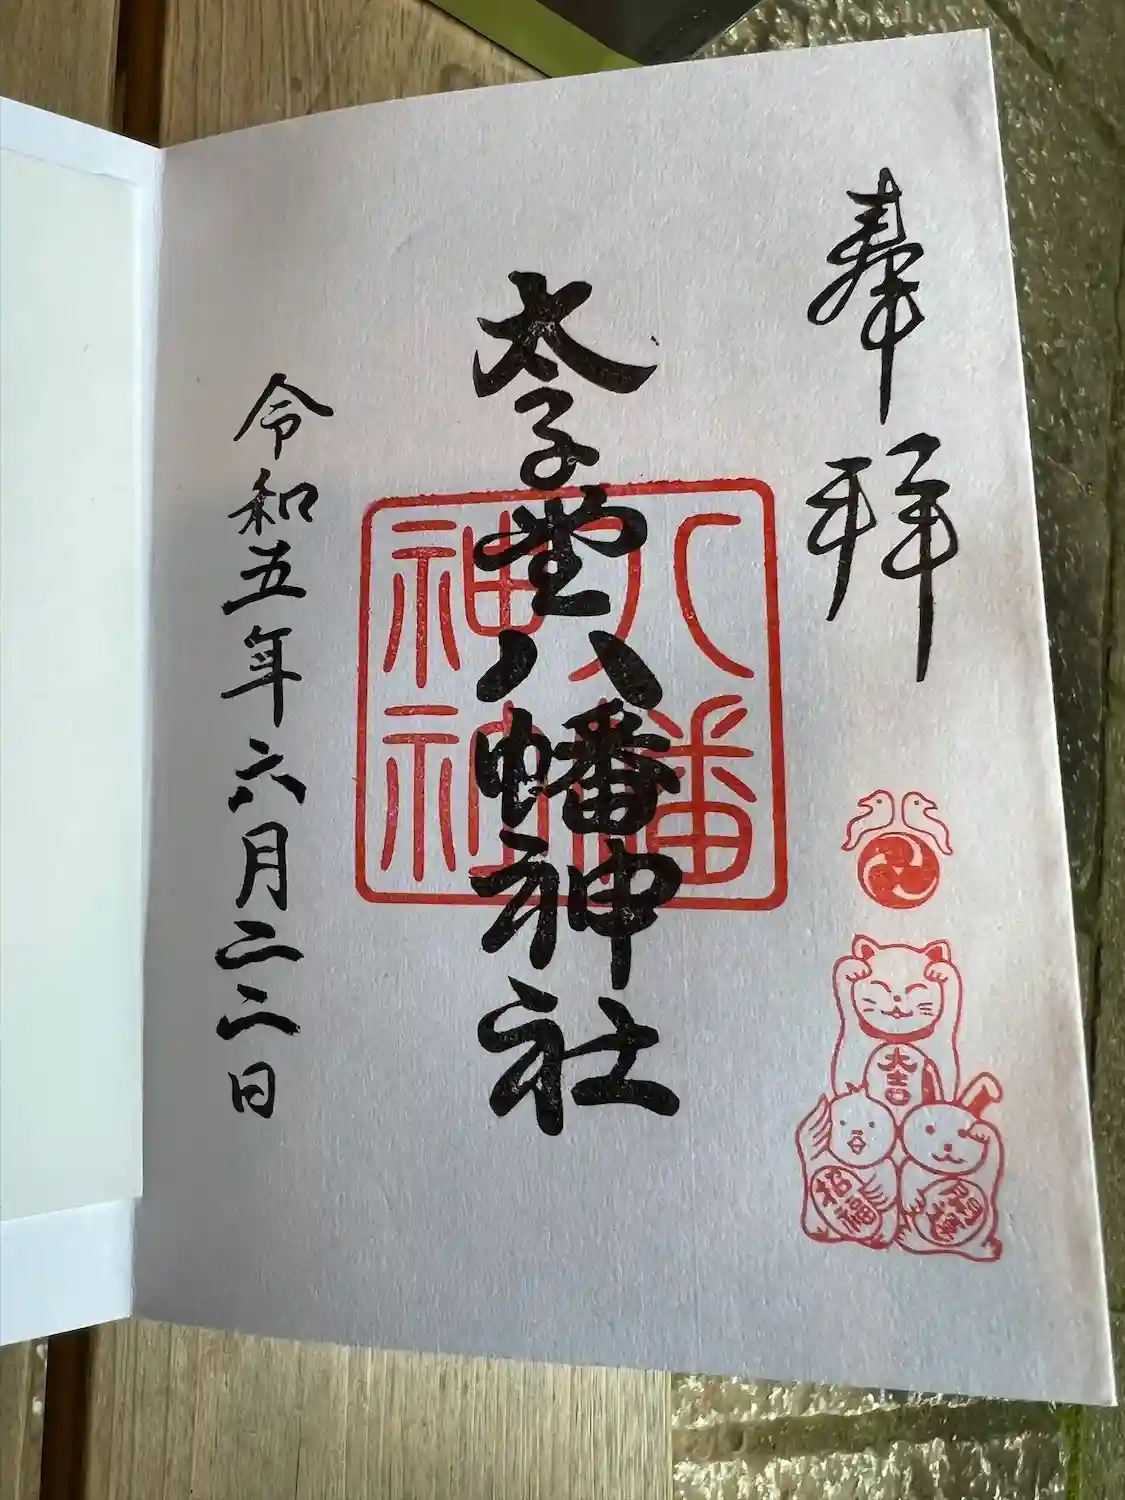 奉拝
太子堂八幡神社
八幡
神社
令和五年六月二二日
大吉
招福